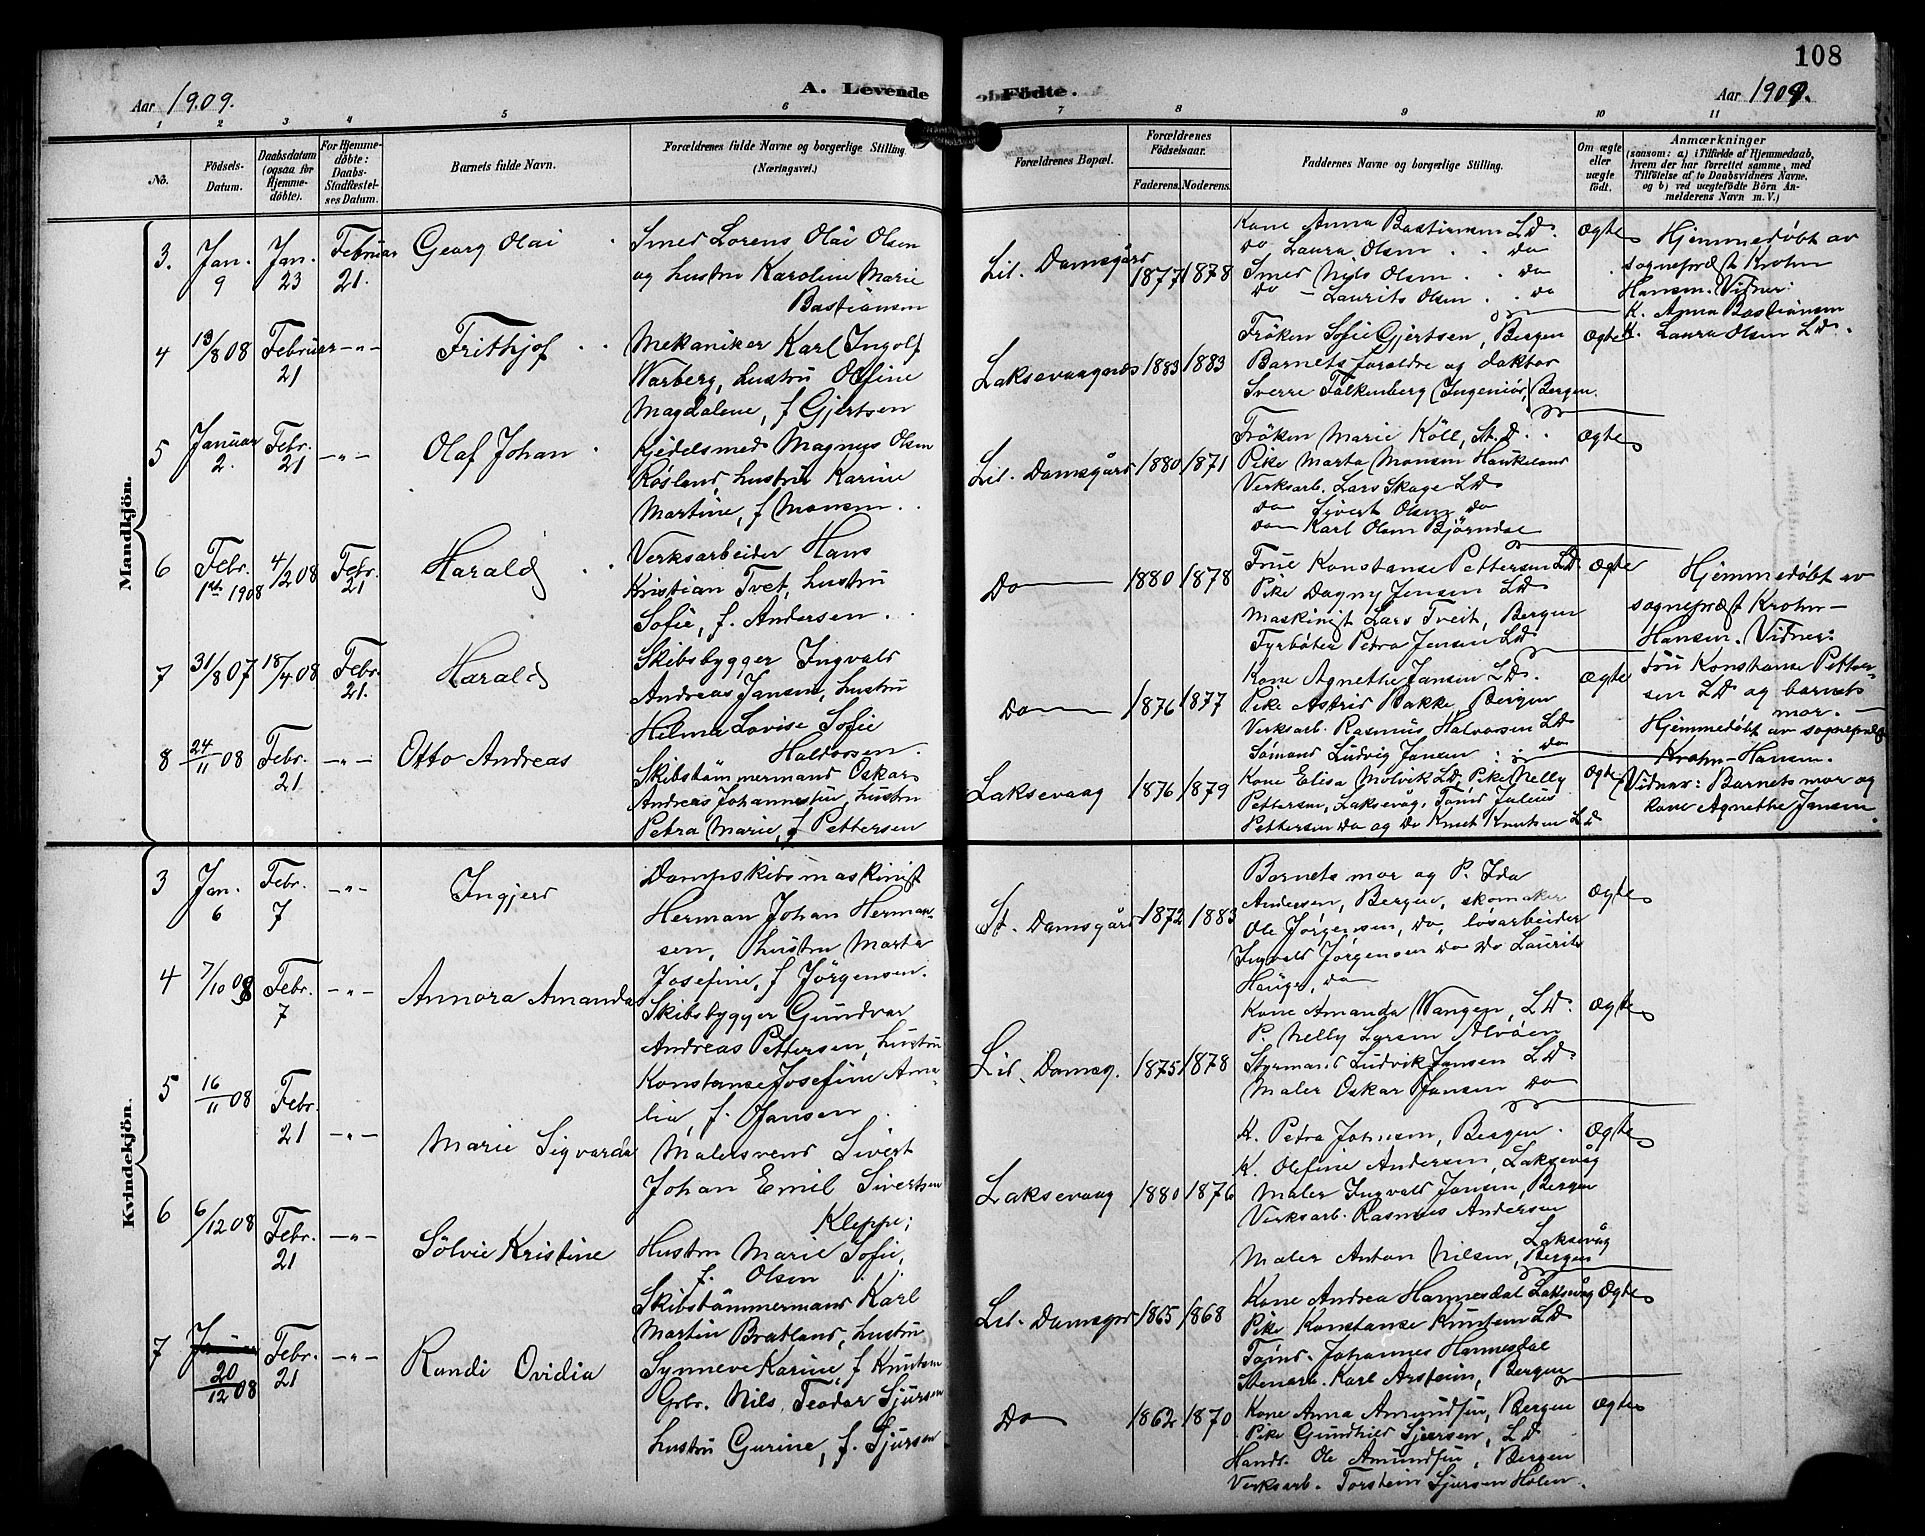 108
Aar 1909.
A. Levende Födte.
Aar 1909.
1 2 3 4 5 6 7 8 9 10 11
No.
Födsels-Datum.
Daabsdatum (ogsaa for Hjemmedöbte).
For Hjemmedöbte: Daabs-Stadfæstelses Datum.
Barnets fulde Navn.
Forældrenes fulde Navne og borgerlige Stilling. (Næringsvei.)
Forældrenes Bopæl.
Forældrenes Födselsaar.
Faderens. Moderens.
Faddernes Navne og borgerlige Stilling.
Om ægte eller uægte födt.
Anmærkninger
(saasom: a) i Tilfælde af Hjemmedaab, hvem der har forrettet samme, med Tilföielse af to Daabsvidners Navne, og b) ved uægtefödte Börn Anmelderens Navn m. V.)
Mandkjön.
3. Jan. 9 Jan. 23 Februar 21. Georg Olai
Smed Lorens Olai Olsen
og hustru Karoline Marie
Bastiansen
Lil. Damsgård 1877 1878
Kone Anna Bastiansen LD.
do Laura Olsen . . do
Smed Nyls Olsen . . do
do – Laurits Olsen . . do
Ægte
Hjemmedøbt av
sognepræst Krohn
Hansen. Vidner:
K. Anna Bastiansen
K. Laura Olsen LD.
4 13/8 08 Februar 21 –„– Frithjof
Mekaniker Karl Ingolf
Warberg, hustru Olefine
Magdalene, f Gjertsen
Laksevaagnes 1883 1883
Frøken Sofie Gjertsen, Bergen
Barnets foreldre og doktor
Sverre Falkenberg (Ingeniør) Bergen.
Ægte
5 Januar 2. Febr. 21 –„– Olaf Johan
Kjedelsmed Magnus Olsen
Røsland, hustru Karine
Martine, f Monsen
Lil. Damsgård 1880 1871
Frøken Marie Köll, St. D.
Pike Marta Monsen Haukeland
Verksarb. Lars Skage LD
do Sivert Olsen do
do Karl Olsen Bjørndal
Ægte
6 Febr. 1ste 1908 4/2 08 Febr. 21 Harald
Verksarbeider Hans
Kristian Tvet, hustru
Sofie, f. Andersen
Do 1880 1878
Frue Konstanse Pettersen LD
Pike Dagny Jensen LD
Maskinist Lars Tveit, Bergen
Fyrbøter Petra Jensen LD
Ægte
Hjemmedøbt av
sognepræst Krohn–
Hansen. Vidner:
Fru Konstanse Petter-
sen LD og barnets
mor. –
7 31/8 07 18/4 08 Febr. 21. Harald
Skibsbygger Ingvald
Andreas Jansen, hustru
Helma Lovise Sofie
Haldorsen.
Do 1876 1877
Kone Agnethe Jansen LD.
Pike Astrid Bakke, Bergen
Verksarb. Rasmus Halvorsen LD
Sømand Ludvig Jansen . . do
Ægte
Hjemmedøbt av sognepræst
Krohn–Hansen.
Vidner: Barnets mor og
kone Agnethe Jansen.
8 24/11 08 Febr. 21 –„– Otto Andreas
Skibstømmermand Oskar
Andreas Johannessen, hustru
Petra Marie, f Pettersen
Laksevaag 1876 1879
Kone Elisa Molvik LD, Pike Nelly
Pettersen, Laksevåg, Tømd Julius
Pettersen do og do Knut Knutsen LD
Ægte
Kvindekjön.
3 Jan. 6 Febr. 7 –„– Ingjerd
Dampskibsmaskinist
Herman Johan Herman-
sen, hustru Marta
Josefine, f Jörgensen.
St. Damsgård 1872 1883
Barnets mor og P. Ida
Andersen, Bergen, skomaker
Ole Jørgensen, do, løsarbeider
Ingvald Jørgensen do do Laurits
Hauge, do
Ægte
4 7/10 08 Febr. 7 –„– Annora Amanda
Skibsbygger Gundvar
Andreas Pettersen, hustru
Konstanse Josefine Ama-
lia, f. Jansen
Lil. Damsg. 1875 1878
Kone Amanda Wangen, LD.
P. Nelly Larsen Alvøen
Styrmand Ludvik Jansen LD
Maler Oskar Jansen do
Ægte
5 16/11 08 Febr. 21 –„– Marie Sigvarda
Malersvend Sivert
Johan Emil Sivertsen
Kleppe;
Hustru Marie Sofie,
f. Olsen
Laksevaag 1880 1876
K. Petra Johnsen, Bergen.
K. Olefine Andersen, Laksevåg
Maler Ingvald Jansen, Bergen
Verksarb. Rasmus Andersen
Laksevåg
Maler Anton Nilsen, Bergen
Ægte
6 6/12 08 Febr. 21 –„– Sölvie Kristine
Skibstömmermand Karl
Martin Bratland, hustru
Synneve Karine, f Knutsen
Lil. Damsgrd 1865 1868
Kone Andrea Hannesdal Laksvåg
Pike Konstanse Knutsen LD
Tømd. Johannes Hannesdal
Stenarb. Karl Arstein, Bergen
Ægte
7 Januar 20/12 08 Febr. 21 –„– Randi Ovidia
Grbr. Nils Teodor Sjursen
hustru Gurine, f. Sjursen
Do 1862 1870
Kone Anna Amundsen, Bergen
Pike Gundhild Sjursen, LD
Handr. Ole Amundsen, Bergen
Verksarb. Torstein Sjursen Holen.
Ægte